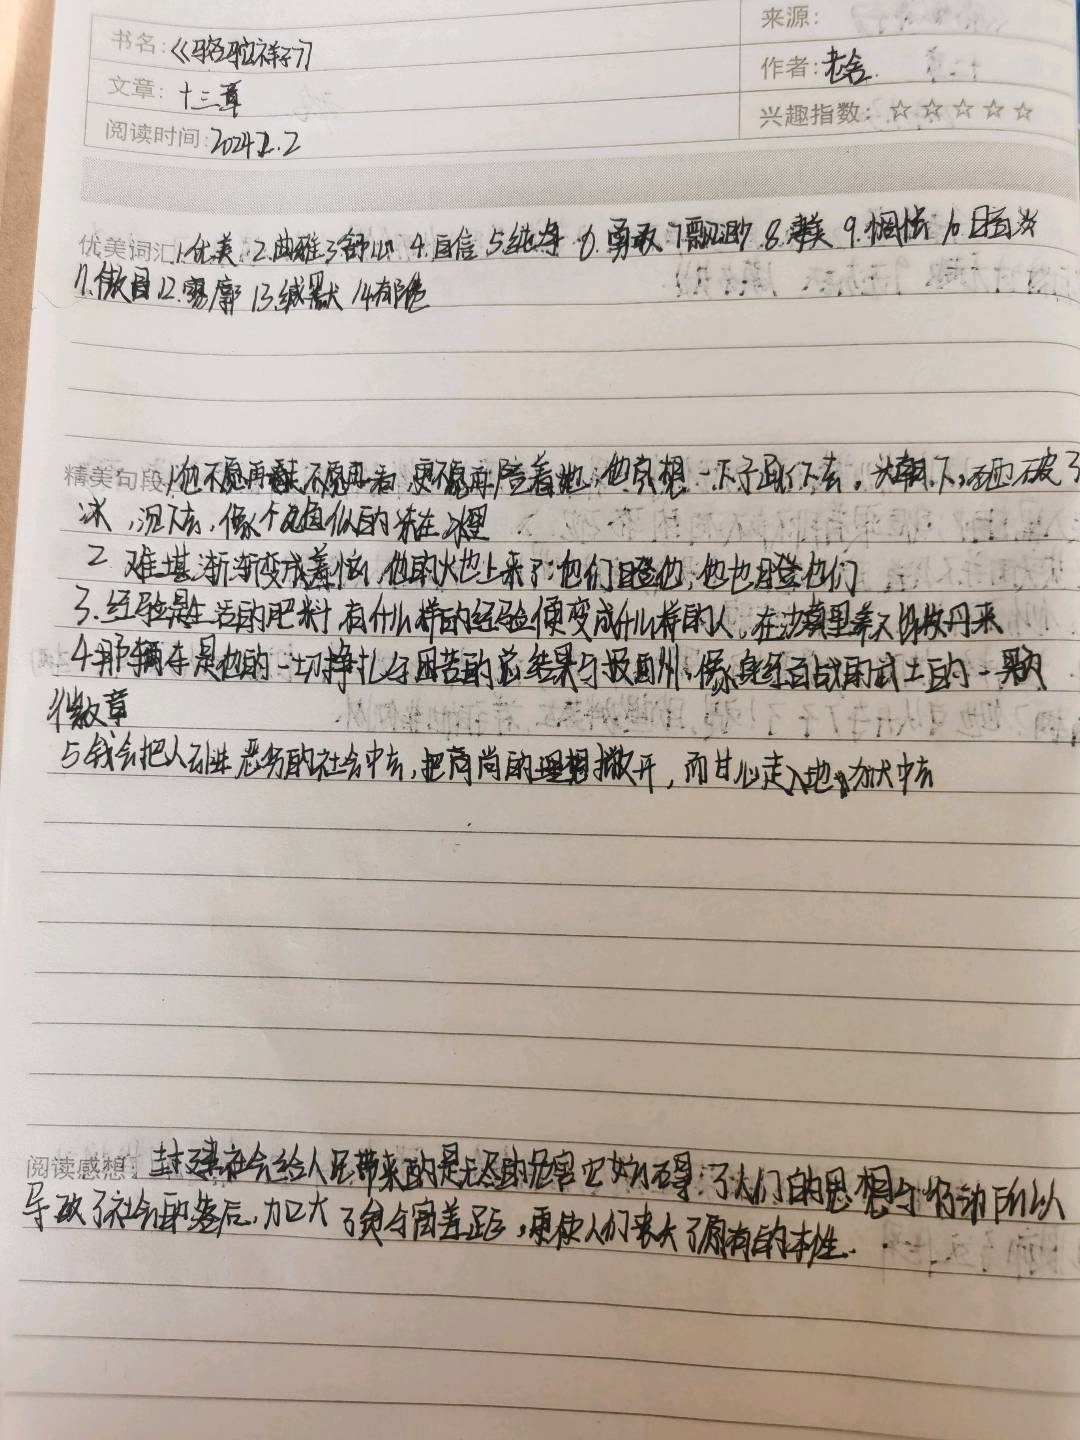 来源:
书名:《骆驼祥子》
作者:老舍
文章: 十三章
兴趣指数: ☆☆☆☆☆
阅读时间:2024.2.2
优美词汇 1.优美 2.典雅 3.舒心 4.自信 5.纯净 6.勇敢 7飘渺 8.凄美 9.惆怅 10.
11. 12.寥廓 13.缄默 14.
精美句段 1他不愿再 不愿再看,更不愿再陪着她;他真想一下子跳下去。头朝下,砸破了
冰,沉下去,像个死鱼似的冻在冰里
2 难堪渐渐变成羞恼,他的火也上来了;他们瞪他,他也瞪他们
3.经验是生活的肥料 有什么样的经验便变成什么样的人,在沙漠里养不出牡丹来
4那辆车是他的一切挣扎与困苦的总结果与报酬,像身经百战的武士的一颗
徽章
5钱会把人引进恶劣的社会中去,把高尚的理想撇开,而甘心走入地狱中去
阅读感想: 封建社会给人民带来的是无尽的危害 它 了人们的思想与行动所以
导致了社会的落后,加大了贫富差距,更使人们丧失了原有的本性.